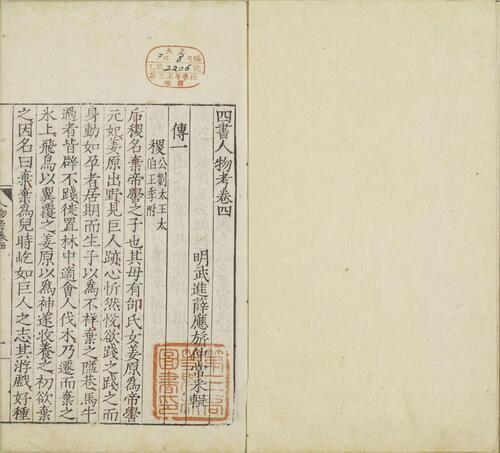 四書人物考卷四
明武進薛應旂仲常釆輯
傳一
稷 公劉太王太伯王季附
后稷名棄帝嚳之子也其母有邰氏女姜原為帝嚳
元妃姜原出野見巨人跡心忻然悅欲踐之踐之而
身動如孕者居期而生子以為不祥棄之隘巷馬牛
過者皆辟不踐徙置林中適會人伐木乃遷而棄之
氷上飛鳥以翼覆之姜原以為神遂收養之初欲棄
之因名曰棄棄為兒時屹如巨人之志其游戲好種
2206